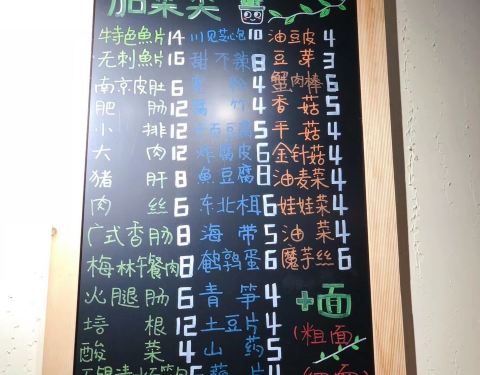 加菜类
特色魚片 14 川贝芯泡 10 油豆皮 4
无刺魚片 16 甜不辣 8 豆芽 3
南京皮肚 6 4 蟹肉棒 6
肥肠 12 腐竹 4 香菇 5
小排 12 千百豆腐 5 干菇 4
大肉 12 炸腐皮 6 金针菇 4
猪肝 8 魚豆腐 8 油麦菜 4
肉丝 6 东北 6 娃娃菜 4
广式香肠 8 海带 5 油菜 4
梅林午餐肉 8 鹌鹑蛋 6 魔芋丝 6
火腿肠 6 青笋 4 +面
培根 12 土豆片 4 (粗面
酸菜 4 山药 5
藕片